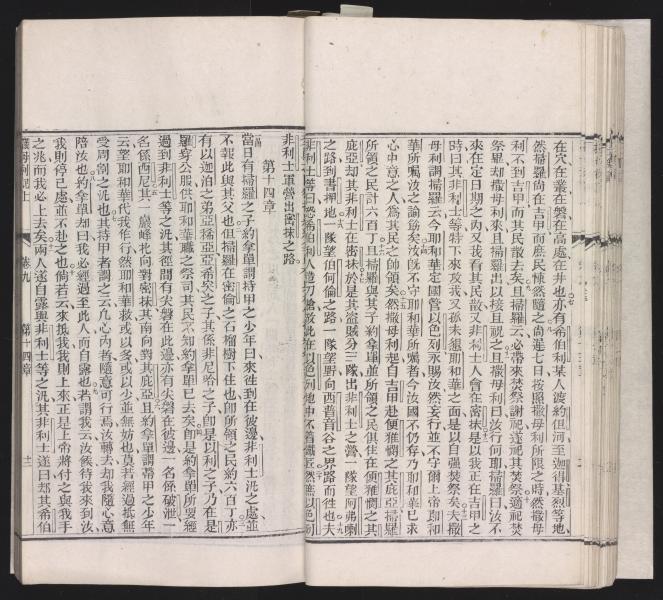 在穴在叢在磐在高處在井也亦有希伯利某人渡約但河至迦得基烈等地
然掃羅尚在吉甲而庶民悚然隨之尙是七日按照撒母利所限之時然撒母
利不到吉甲而其民散去矣且掃羅云必帶來焚祭謝祀遂祀其焚祭適祀焚
祭畢却撒母利來且掃羅出以接且祝之且撒母利曰汝行何耶掃羅曰汝不
來在定日期之內又我看其民散又非利士人會在密抹是以我正在吉甲之
時曰其非利士等特下來攻我又孫未懇耶和華之面是以自强焚祭矣夫撒
母利謂掃羅云今耶和華定國管以色列永賜汝然妄行並不守爾上帝耶和
華所囑汝之諭筋矣汝既不守耶和華所囑者今汝國不仍存乃耶和華已求
心中意之人爲其民之帥領矣然撒母利起自吉甲赴便雅憫之其庇亞掃羅
所領之民計六百丁且掃羅與其子約拿單並所領之民俱住在便雅憫之其
庇亞却其非利士在密抹於是其盜賊分三隊出非利士之營一隊望阿弗喇
之路到書押地一隊望伯何倫之路一隊望野向西普音谷之界路而往也夫
第十四章
非利士軍營出密抹之路
當日有掃羅之子約拿單謂持甲之少年曰來徃到在彼邊非利士汛之處並
不報此與其父也但掃羅在密倫之石榴樹下住也卽所領之民約六百丁亦
有以迦泊之弟亞揺亞亞希矣之子其係非尼哈之子卽是以利之子乃在是
羅穿公服供耶和華職之祭司其民不知約拿單已去矣卽是約拿單所要經
過到非利士等之汛其徑間有尖磐在此邊亦有尖磐在彼邊一名係破泄一
名係西尼其一巖峰北向對密抹其南向對其庇亞且約拿單謂帶甲之少年
云望耶和華代我作行然耶和華救或以多或以少並無妨也莫若經過抵無
受周割之汛也其持甲者謂之云凡心內者隨意可行焉汝轉去却我隨心意
陪汝也約拿單却曰我必經過至此人而自露也若謂我云汝候待我來到汝
我則停己處並不赴之也倘若云來抵我我則上來正是上帝將付之與我手
之兆而我必上去矣兩人遂自露與非利士等之汛其非利士遂曰却其希伯
卷九 第十四章